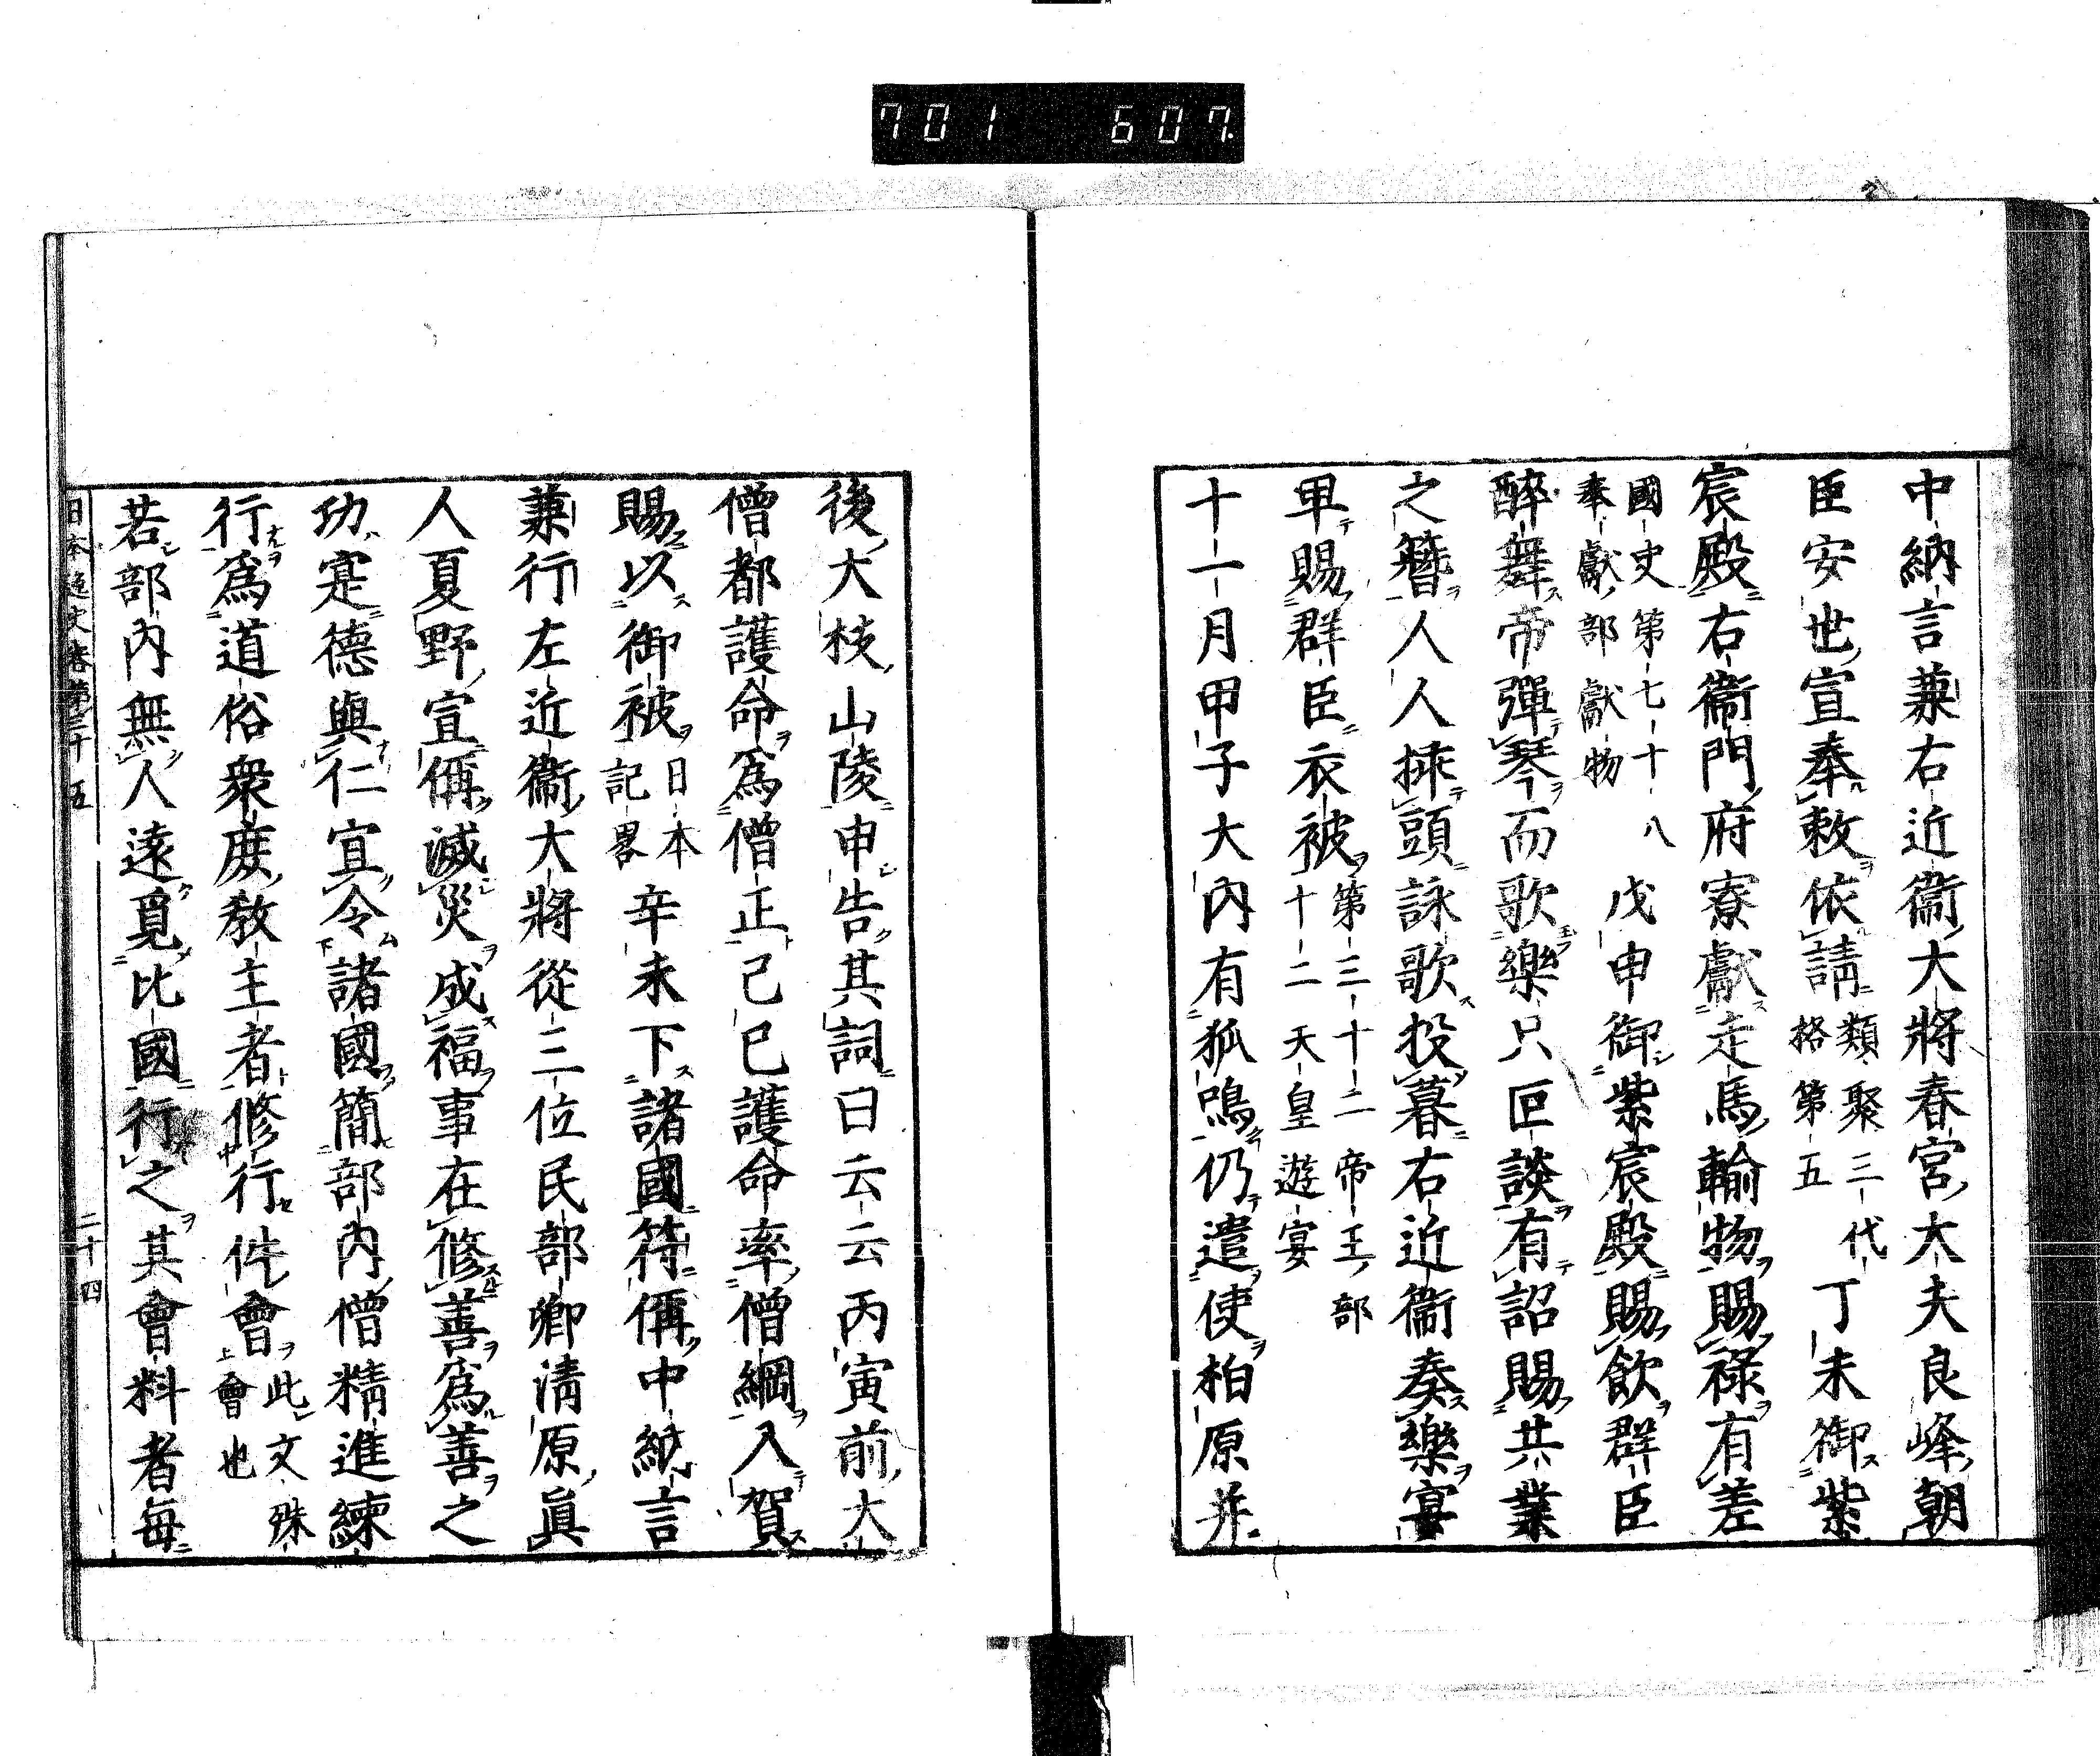 701 607
中納言兼右近衞大將春宮大夫良峰朝
臣安世宣奉敕依請類聚三代格第五丁未御紫
宸殿右衞門府寮獻走馬輸物賜祿有差
國史第七十八奉獻部獻物戊申御紫宸殿賜飮群臣
醉舞帝彈琴而歌樂只叵談有詔賜共業
之簪人人揷頭詠歌投暮右近衞奏樂宴
畢賜群臣衣被第三十二帝王部十二天皇遊宴
十一月甲子大內有狐鳴仍遣使柏原并
後大枝山陵申告其詞曰云云丙寅前大
僧都護命爲僧正己巳護命率僧綱入賀
賜以御被日本記畧辛未下諸國符偁中納言
兼行左近衞大將從三位民部卿淸原眞
人夏野宣偁滅災成福事在修善爲善之
功寔德與仁宜令諸國簡部內僧精進練
行爲道俗衆庻敎主者修行件會此文殊會也
若部內無人遠覓比國行之其會料者每
日本逸史卷第三十五 二十四